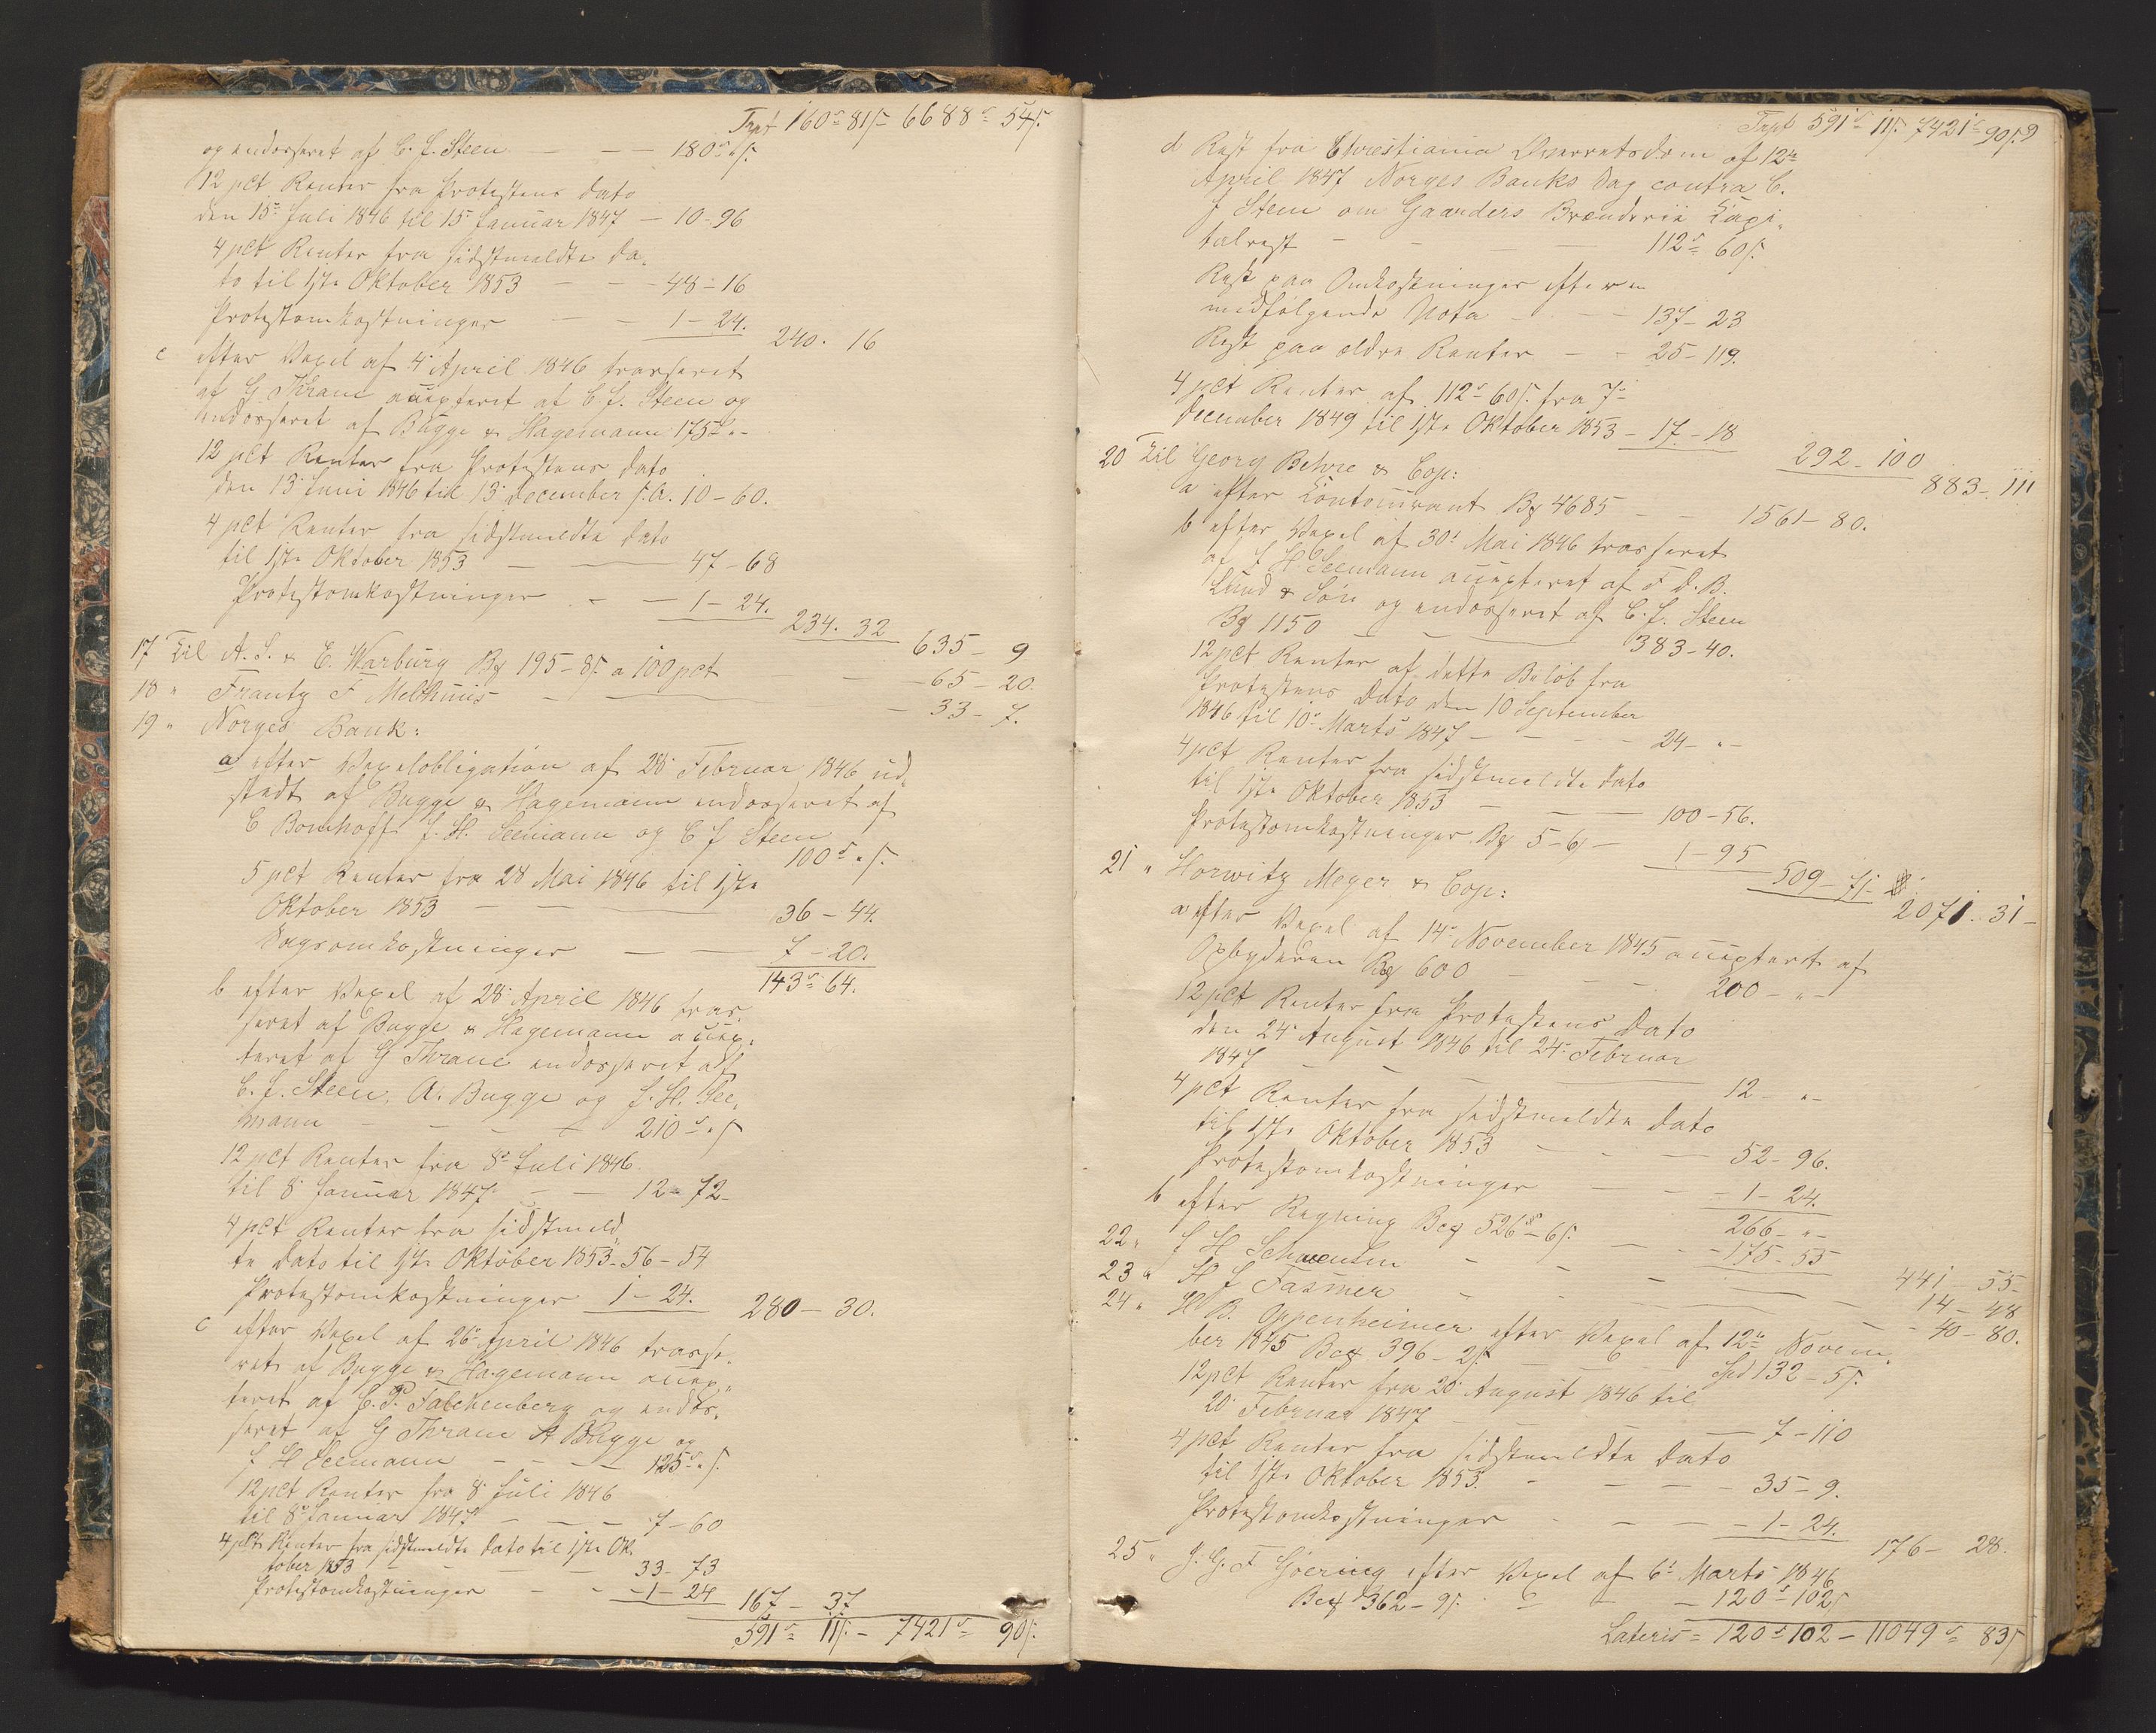 Trpt 160 81ß 6688 54ß.
og endosseret af C. J. Steen — — — 180 " ß.
12 pCt Renter fra Protestens Dato
den 15 Juli 1846 til 15 Januar 1847 — 10 - 96
4 pCt Renter fra sidstmeldte Da-
to til 1ste Oktober 1853 — — — 48 - 16
Protestomkostninger — — 1 - 24. 240. 16
c efter Vexel af 4 April 1846 trasseret
af G. Thrane accepteret af C. J. Steen og
endosseret af Bugge & Hagemann 175 " -
12 pCt Renter fra Protestens Dato
den 13 Juni 1846 til 13 December s. A. 10 - 60.
4 pCt Renter fra sidstmeldte Dato
til 1ste Oktober 1853 — — 47 - 68
Protestomkostninger — — 1 - 24. 234. 32 635 - 9
17 Til A. S. & E. Warburg Bf 195 - 8ß a 100 pct — — 65 - 20.
18 " Frantz F Melthuus — — — 33 - 7.
19 " Norges Bank:
a efter Vexelobligation af 28 Februar 1846 ud-
stedt af Bugge & Hagemann endosseret af
C Bomhoff J. H. Seemann og C J Steen 100 " ß.
5 pCt Renter fra 28 Mai 1846 til 1ste
Oktober 1853 — — 36 - 44.
Sagsomkostninger — — 7 - 20.
143 64.
b efter Vexel af 28 April 1846 tras-
seret af Bugge & Hagemann accep-
teret af G Thrane endosseret af
C. J. Steen, A. Bugge og J. H. See-
mann — — — — 210 " ß
12 pCt Renter fra 8 Juli 1846
til 8 Januar 1847 — — 12 - 72 -
4 pCt Renter fra sidstmeld-
te Dato til 1ste Oktober 1853 - 56 - 54
Protestomkostninger 1 - 24. 280 - 30.
c efter Vexel af 26 April 1846 trasse-
ret af Bugge & Hagemann accep-
teret af C. P. Falchenberg og endos-
seret af G Thrane A Bugge og
J H Seemann — — — — 125 " ß.
12 pCt Renter fra 8 Juli 1846
til 8 Januar 1847 — — — 7 - 60
4 pCt Renter fra sidstmeldte Dato til 1ste Ok-
tober 1853 — — — — 33 - 73
Protestomkostninger — — - 1 - 24 167 - 37
591 11ß - 7421 90ß.
Trpt 591 11ß. 7421 90ß. 9
d Rest fra Christiania Overretsdom af 12te
April 1847 Norges Banks Sag contra C.
J Steen om Gaarders Brænderie Capi-
talrest — — — 112 60ß.
Rest paa Omkostninger efter en
medfølgende Nota — — — 137 - 23
Rest paa ældre Renter — — 25 - 119.
4 pCt Renter af 112 60ß. fra 7
December 1849 til 1ste Oktober 1853 - 17 - 18 292 - 100 883 - 111
20 Til Georg Behre & Cop:
a efter Contocurant Bf 4685 — — 1561 - 80.
b efter Vexel af 30 Mai 1846 trasseret
af J H Seemann accepteret af F. D. B.
Lund & Søn og endosseret af C. J. Steen
Bf 1150 — — — 383 - 40.
12 pCt Renter af dette Beløb fra
Protestens Dato den 10 September
1846 til 10 Marts 1847 — — — 24 - " -
4 pCt Renter fra sidstmeldte Dato
til 1ste Oktober 1853 — — 100 - 56.
Protestomkostninger Bf 5 - 6 — 1 - 95 509 - 71 - 2071. 31 -
21 " Horwitz Meyer & Cop:
a efter Vexel af 14 November 1845 accepteret af
Opbyderen Bf 600 — — — 200 - " -
12 pCt Renter fra Protestens Dato
den 24 August 1846 til 24 Februar
1847 — — — 12 - " -
4 pCt Renter fra sidstmeldte Dato
til 1ste Oktober 1853 — — — 52 - 96.
Protestomkostninger — — - 1 - 24.
266 - " -
b efter Regning Bcf 526 - 6ß. — — - 175 - 55 441 - 55 -
22 " J H Schwensen — — — 14 - 48
23 " H J Fasmer — — — 40 - 80.
24 " H B. Oppenheimer efter Vexel af 12te Novem-
ber 1845 Bcf 396 - 2ß. — — Spd 132 - 5ß.
12 pCt Renter fra 20 August 1846 til
20 Februar 1847 — — 7 - 110
4 pCt Renter fra sidstmeldte Dato
til 1ste Oktober 1853. — — — 35 - 9.
Protestomkostninger — — - 1 - 24. 176 - 28.
25 " J. G. F Goering efter Vexel af 6 Marts 1846
Bcf 362 - 9ß. — — 120 102ß
Lateris = 120 102 - 11049 83ß